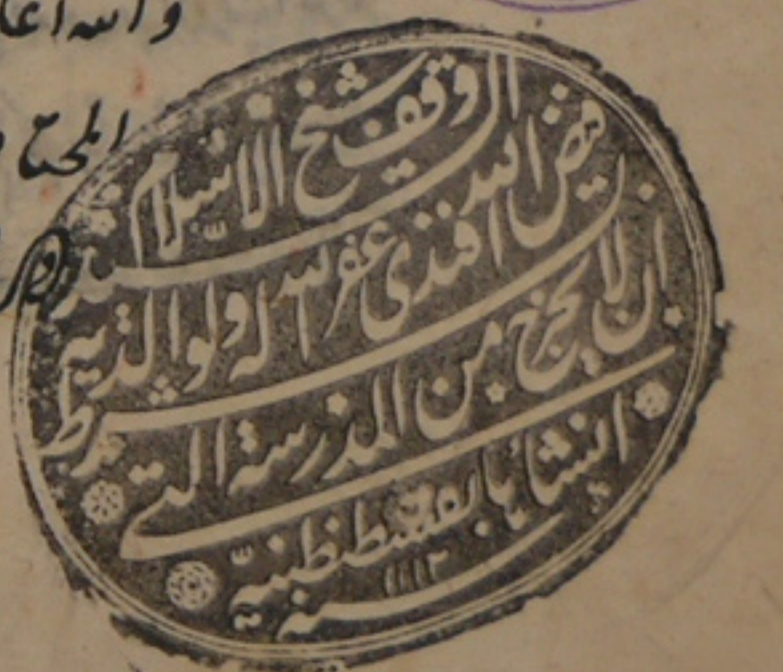 والله
وقف شيخ الاسلام السيد
فيض الله افندى غفر الله له ولوالديه بشرط
ان لا يخرج من المدرسة التى
انشاها بقسطنطنية
سنة ١١١٢